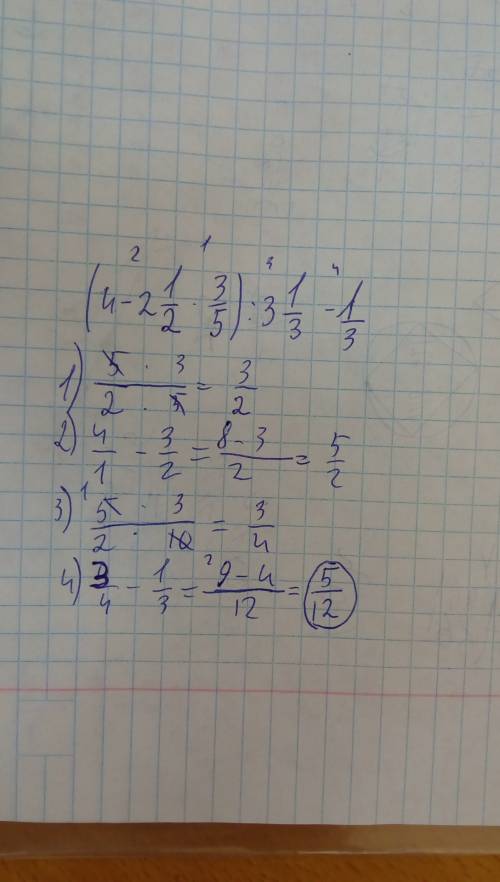 2 1 3 4
(4 - 2 1/2 · 3/5) : 3 1/3 - 1/3
1) 5 · 3 / 2 · 5 = 3/2
2) 4/1 - 3/2 = 8 - 3 / 2 = 5/2
3) 1 5 · 3 / 2 · 10 = 3/4
4) 3/4 - 1/3 = 9 - 4 / 12 = 5/12